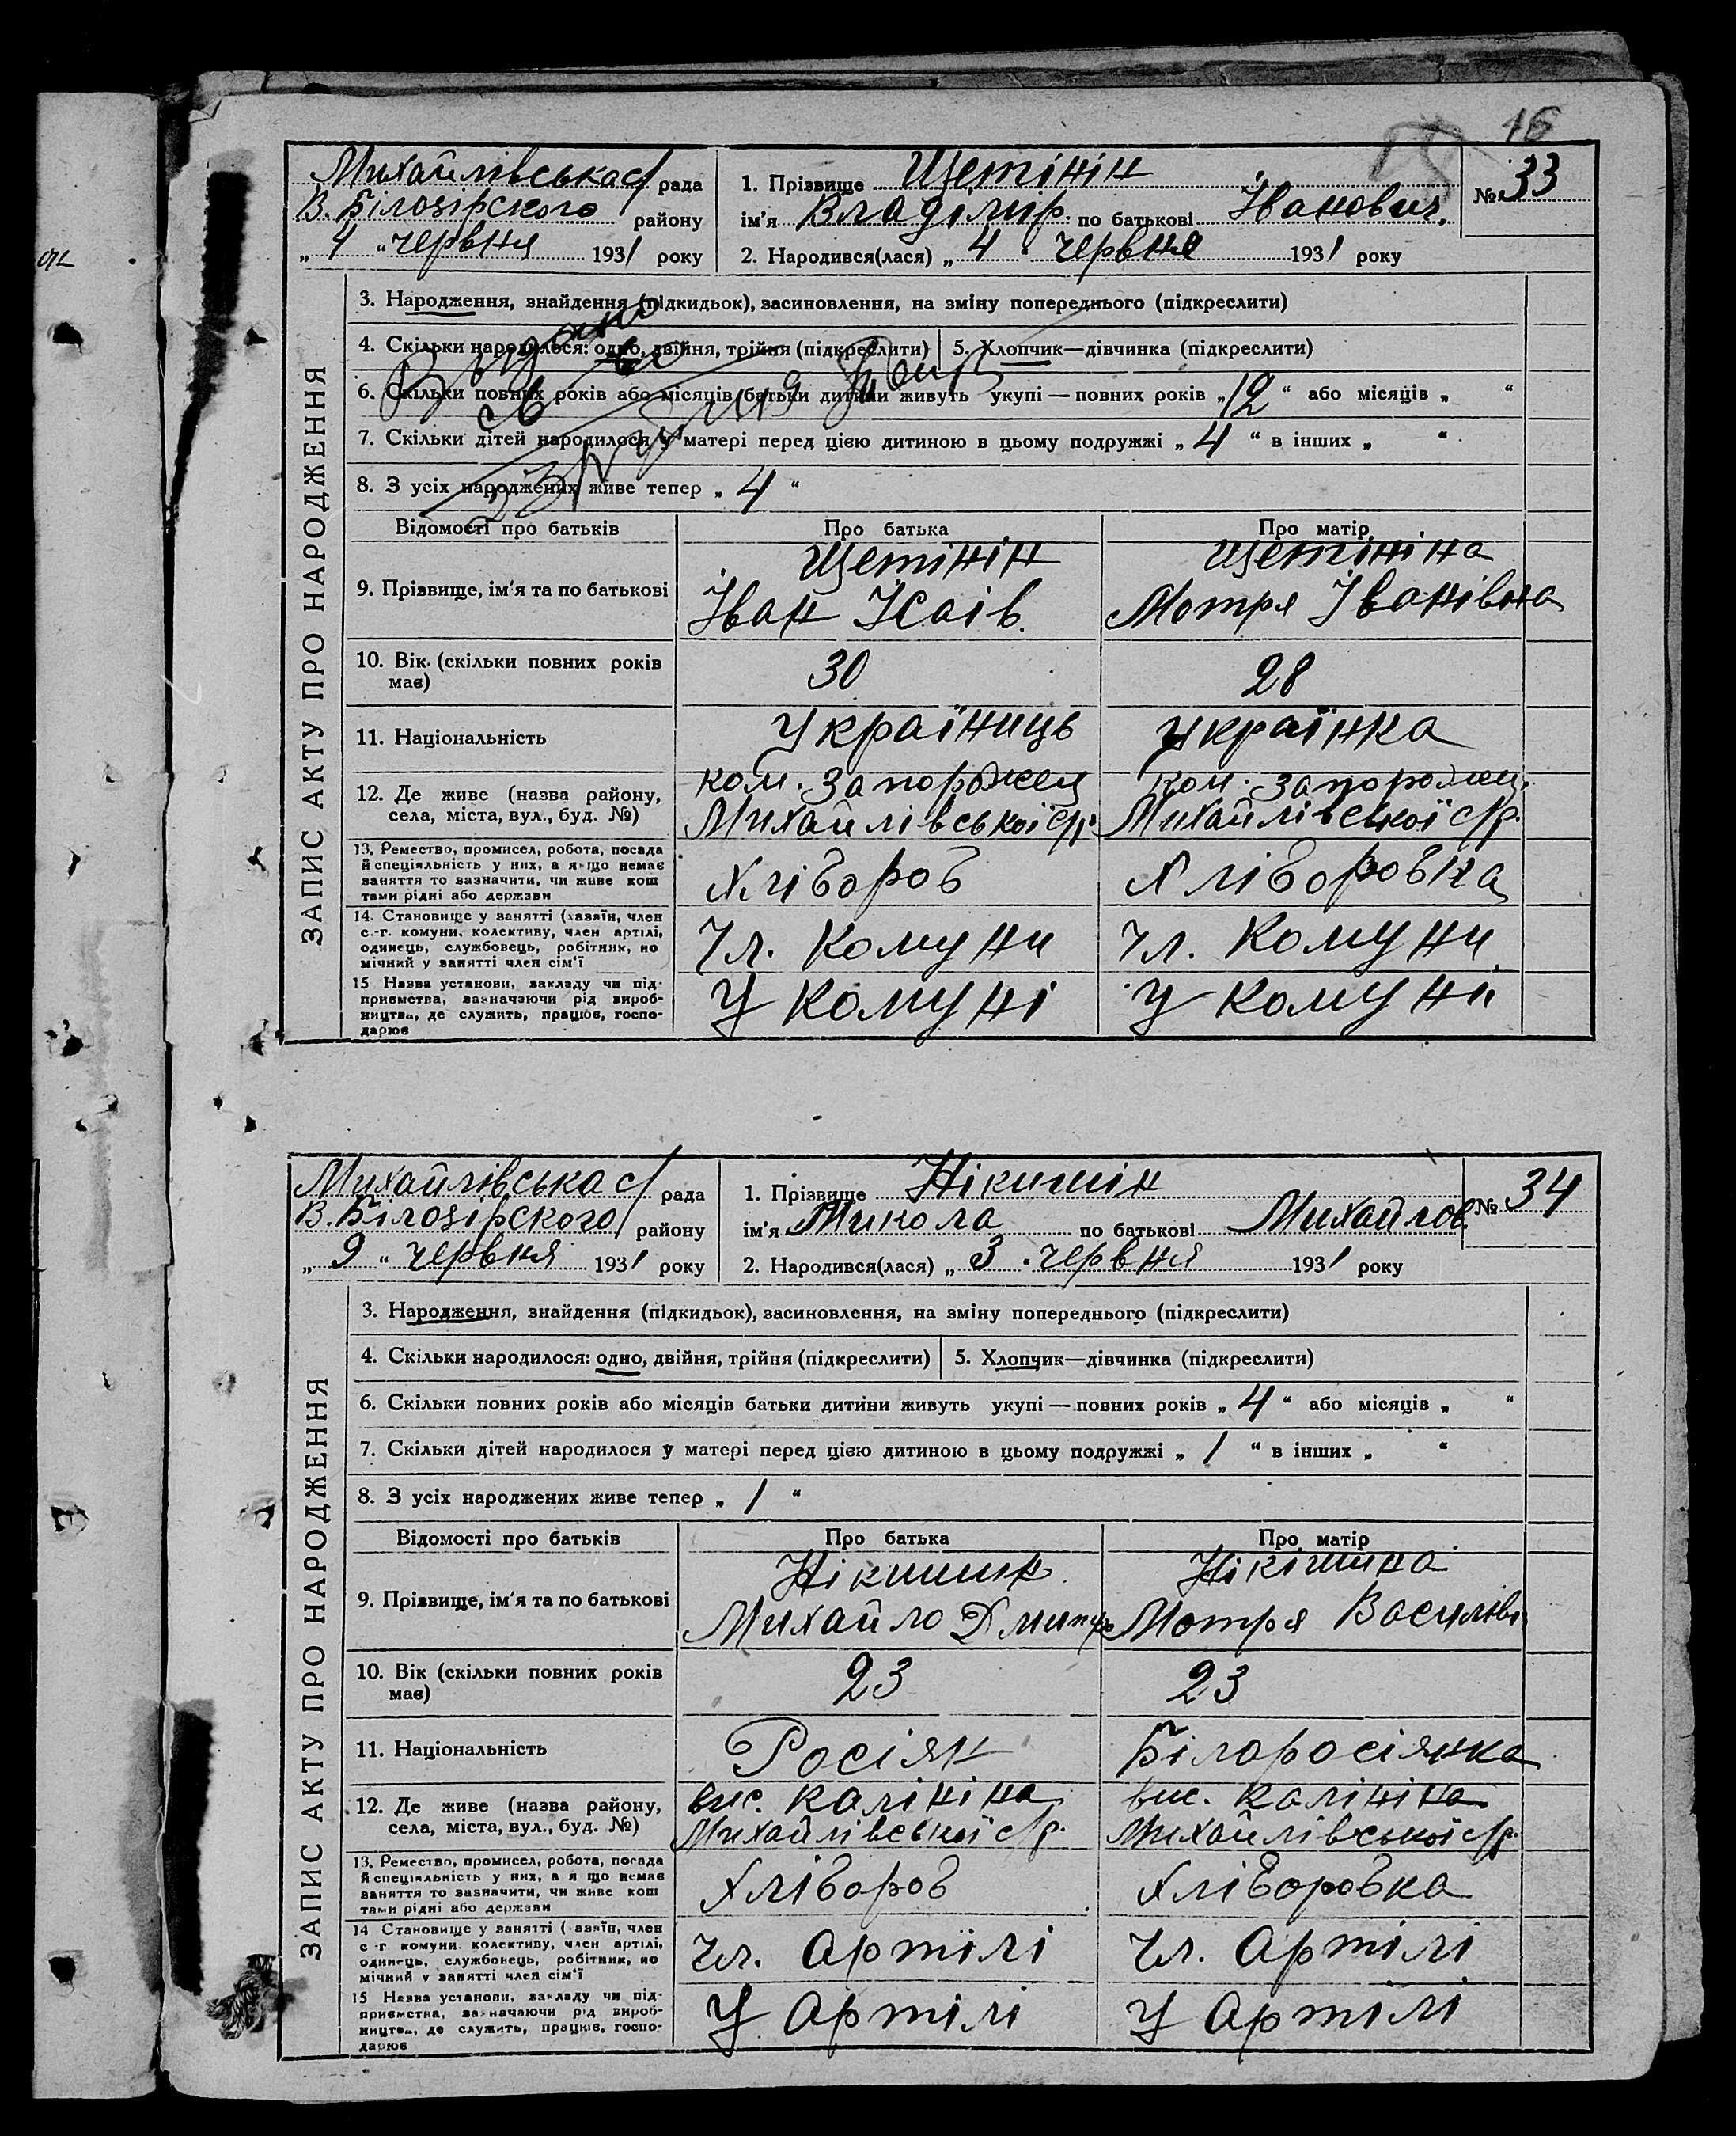 16
Михайлівська с/ рада
В. Білозірского району
„ 4 “ червня 1931 року
1. Прізвище Щетінін
ім'я Владімір по батькові Іванович.
2. Народився(лася) „ 4 “ червня 1931 року
№ 33
ЗАПИС АКТУ ПРО НАРОДЖЕННЯ
3. Народження, знайдення (підкидьок), засиновлення, на зміну попереднього (підкреслити)
4. Скільки народилося: одно, двійня, трійня (підкреслити) 5. Хлопчик—дівчинка (підкреслити)
6. Скільки повних років або місяців батьки дитини живуть укупі — повних років „ 12 “ або місяців „ “
7. Скільки дітей народилося у матері перед цією дитиною в цьому подружжі „ 4 “ в інших „ “
8. З усіх народжених живе тепер „ 4 “
Відомості про батьків Про батька Про матір
9. Прізвище, ім'я та по батькові
Щетінін
Іван Исаів.
Щетініна
Мотря Іванівна
10. Вік (скільки повних років має)
30 28
11. Національність Україниць Українка
12. Де живе (назва району, села, міста, вул., буд. №)
ком. Запорожец
Михайлівської с/р.
ком. Запорожец.
Михайлівської с/р.
13. Ремество, промисел, робота, посада
й спеціяльність у них, а якщо немає
заняття то зазначити, чи живе кош
тами рідні або держави
Хлібороб Хліборобка
14. Становище у занятті (хазяїн, член
с.-г. комуни, колективу, член артілі,
одинець, службовець, робітник, по
мічний у занятті член сім'ї
Чл. Комуни Чл. Комуни
15 Назва установи, закладу чи під-
приємства, зазначаючи рід вироб-
ництва, де служить, працює, госпо-
дарює
У Комуні У Комуні
Михайлівська с/ рада
В. Білозірского району
„ 9 “ червня 1931 року
1. Прізвище Нікишін
ім'я Микола по батькові Михайлов.
2. Народився(лася) „ 3 “ червня 1931 року
№ 34
ЗАПИС АКТУ ПРО НАРОДЖЕННЯ
3. Народження, знайдення (підкидьок), засиновлення, на зміну попереднього (підкреслити)
4. Скільки народилося: одно, двійня, трійня (підкреслити) 5. Хлопчик—дівчинка (підкреслити)
6. Скільки повних років або місяців батьки дитини живуть укупі — повних років „ 4 “ або місяців „ “
7. Скільки дітей народилося у матері перед цією дитиною в цьому подружжі „ 1 “ в інших „ “
8. З усіх народжених живе тепер „ 1 “
Відомості про батьків Про батька Про матір
9. Прізвище, ім'я та по батькові
Нікишин
Михайло Дмитр
Нікішина
Мотря Василів
10. Вік (скільки повних років має)
23 23
11. Національність Росіян Білоросіянка
12. Де живе (назва району, села, міста, вул., буд. №)
вис. Калініна
Михайлівської с/р.
вис. Калініна
Михайлівської с/р.
13. Ремество, промисел, робота, посада
й спеціяльність у них, а якщо немає
заняття то зазначити, чи живе кош
тами рідні або держави
Хлібороб Хліборобка
14 Становище у занятті (хазяїн, член
с.-г. комуни, колективу, член артілі,
одинець, службовець, робітник, по
мічний у занятті член сім'ї
Чл. Артілі Чл. Артілі
15 Назва установи, закладу чи під-
приємства, зазначаючи рід вироб-
ництва, де служить, працює, госпо-
дарює
У Артілі У Артілі